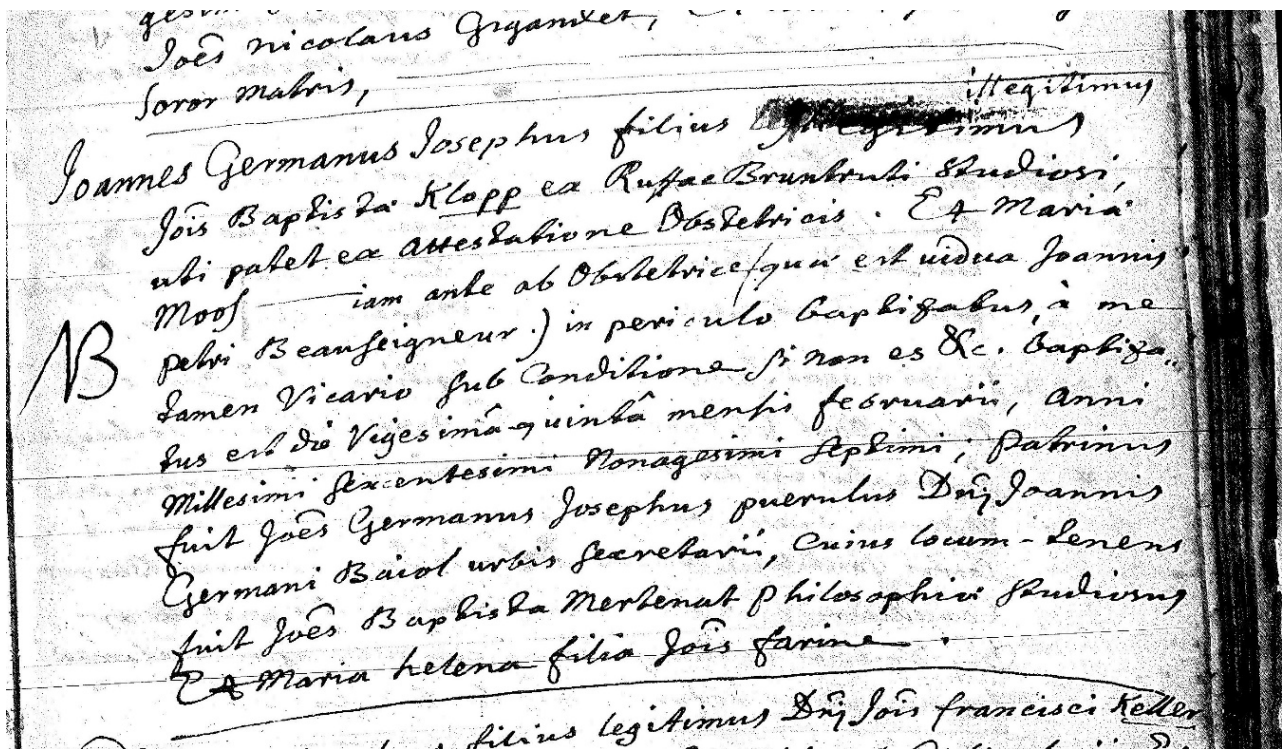 Joēs Nicolaus Gigandet,
Soror Matris,
illegitimus
Joannes Germanus Josephus filius
Jois Baptista Klopp ex Ruffac Bruntruti Studiosi,
uti patet ex Attestatione Obstetricis. Et Maria
Moos iam ante ab Obstetrice (qua est uidua Joannis
NB
petri Beauseigneur.) in periculo baptizatus, à me
tamen Vicario sub Conditione si non es &c. baptiza„
tus est die Vigesimâ-quintâ mensis februarii, Anni
Millesimi sexcentesimi Nonagesimi septimi; Patrinus
fuit Joēs Germanus Josephus puerulus Dnj Joannis
Germani Baiol urbis secretarii, cuius locum-tenens
fuit Joēs Baptista Mertenat Philosophia studiosus
Et Maria helena filia Jois farine.
filius legitimus Dnj Jois francisci Keller